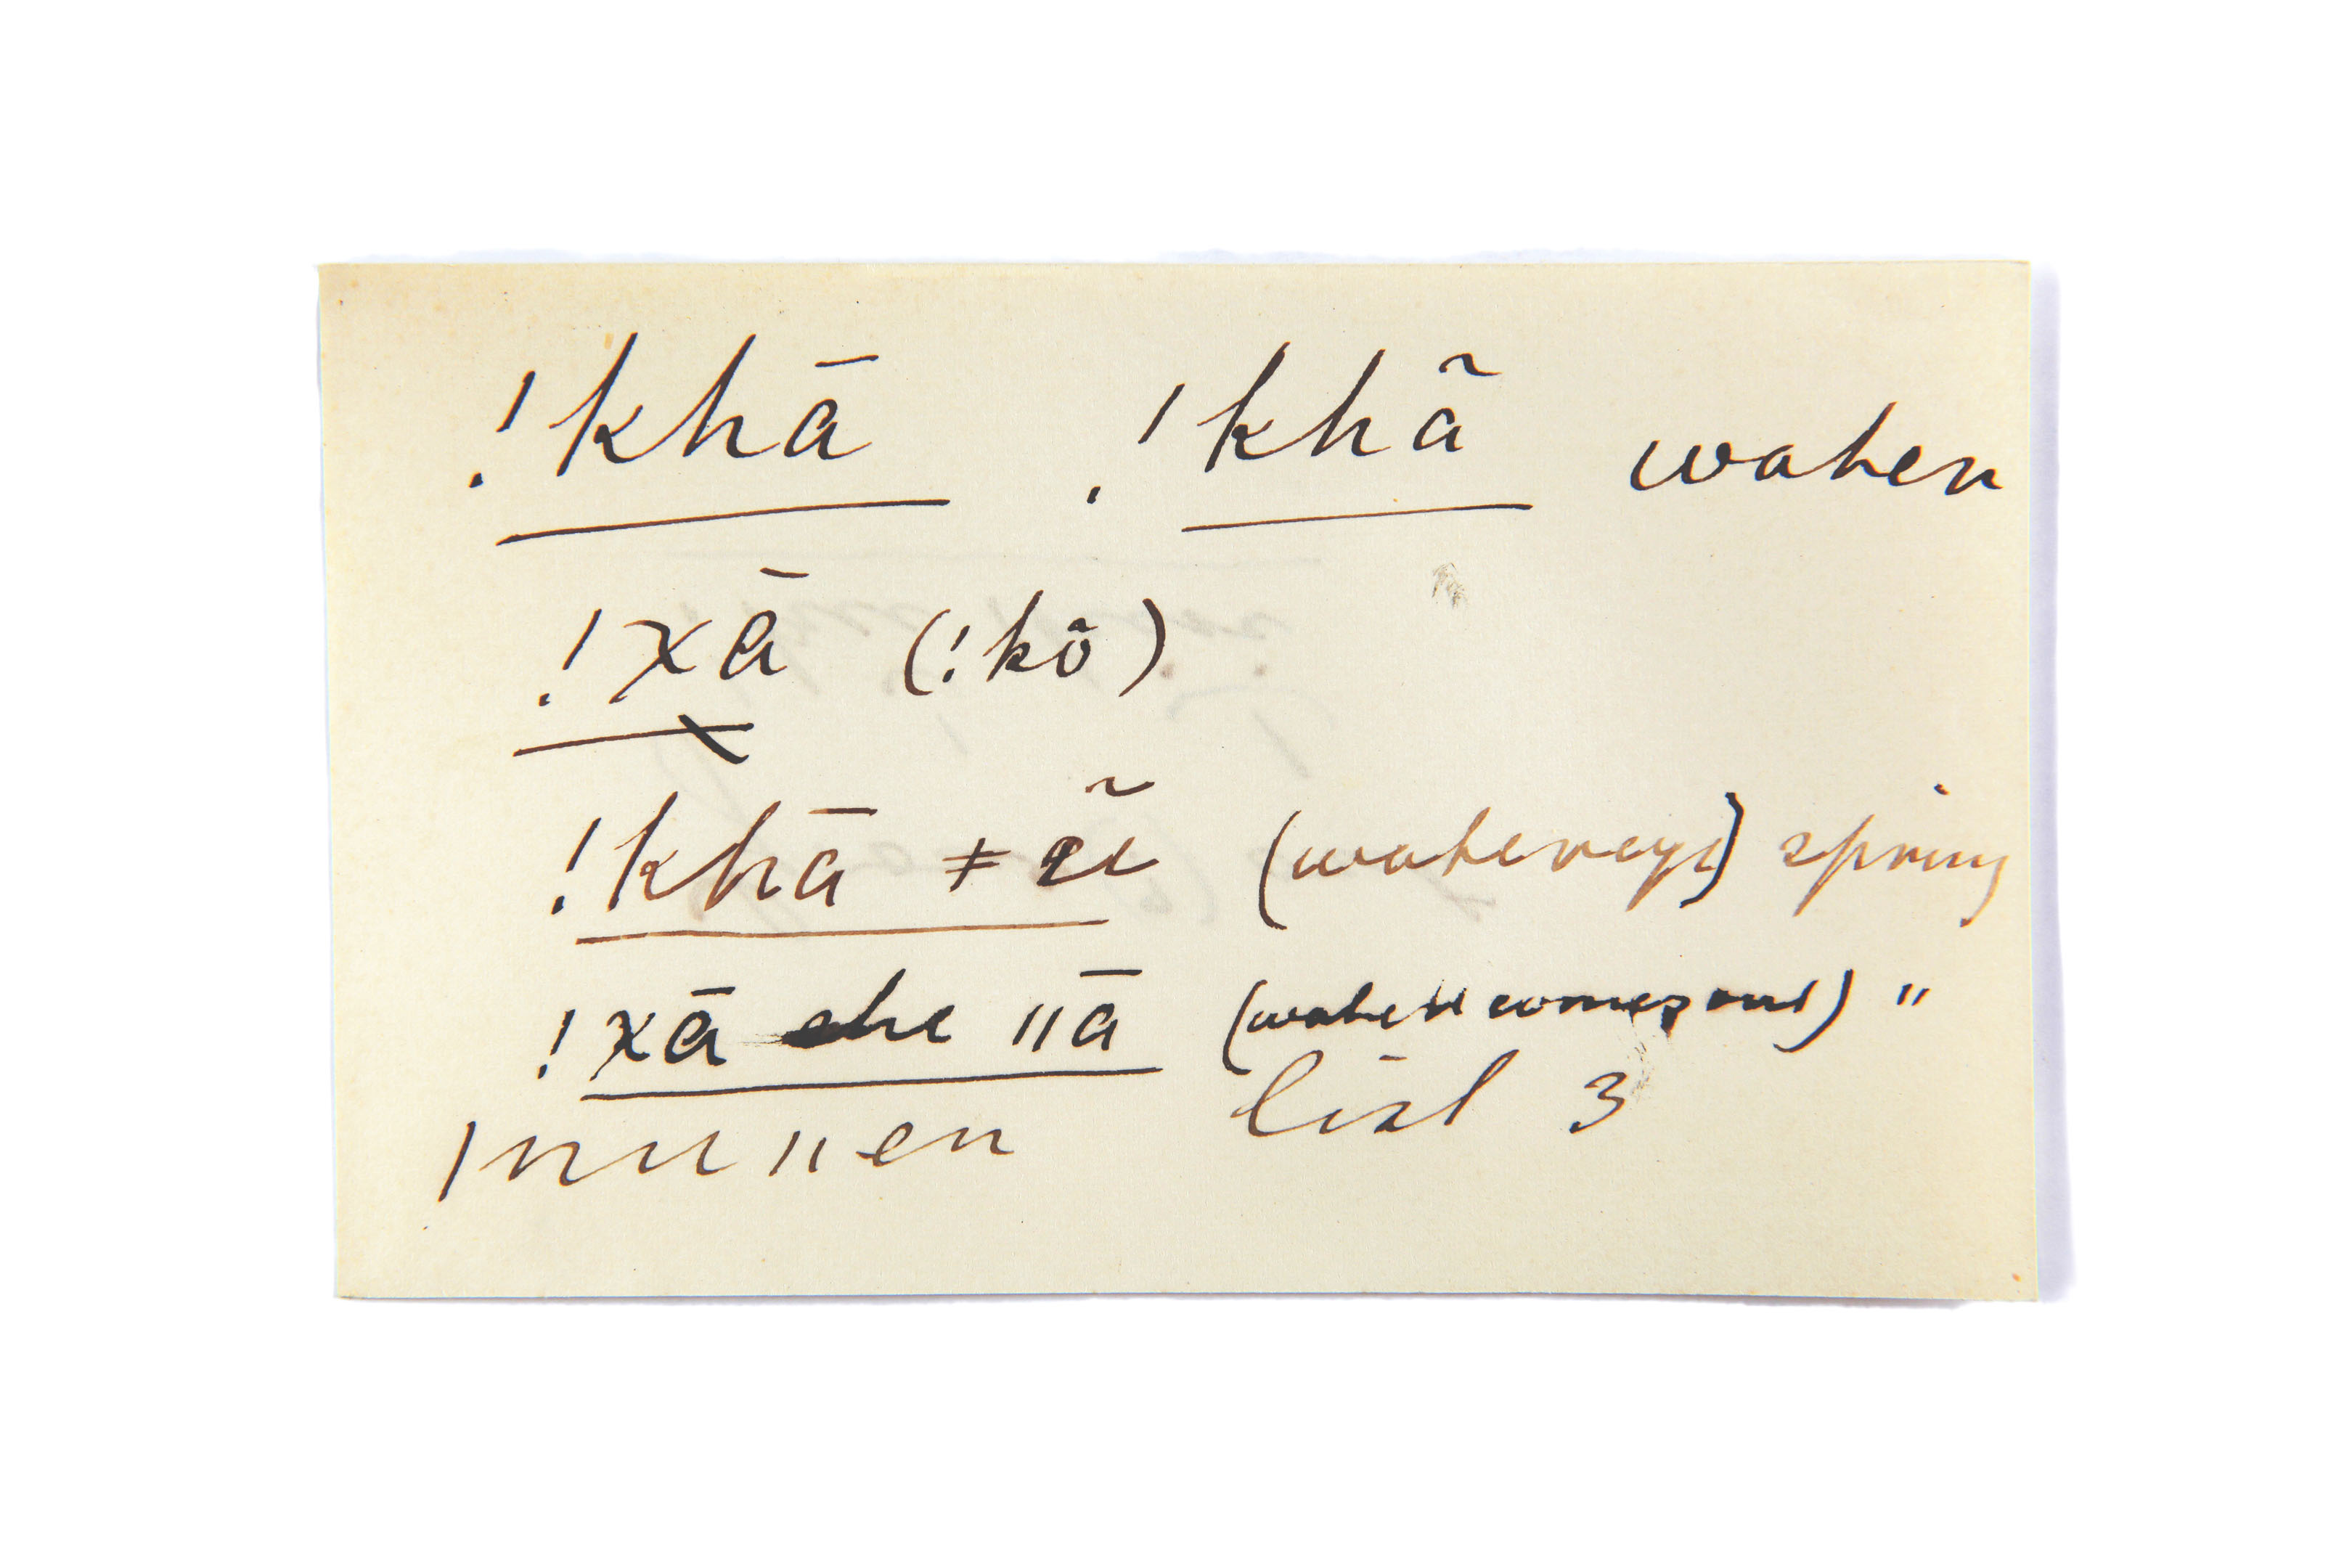 !khā !khã water
!xā (!kõ)
!khā ǂẽi (watereye) spring
!xā ǁā (water comes out) "
list 3
ǀnuǁen